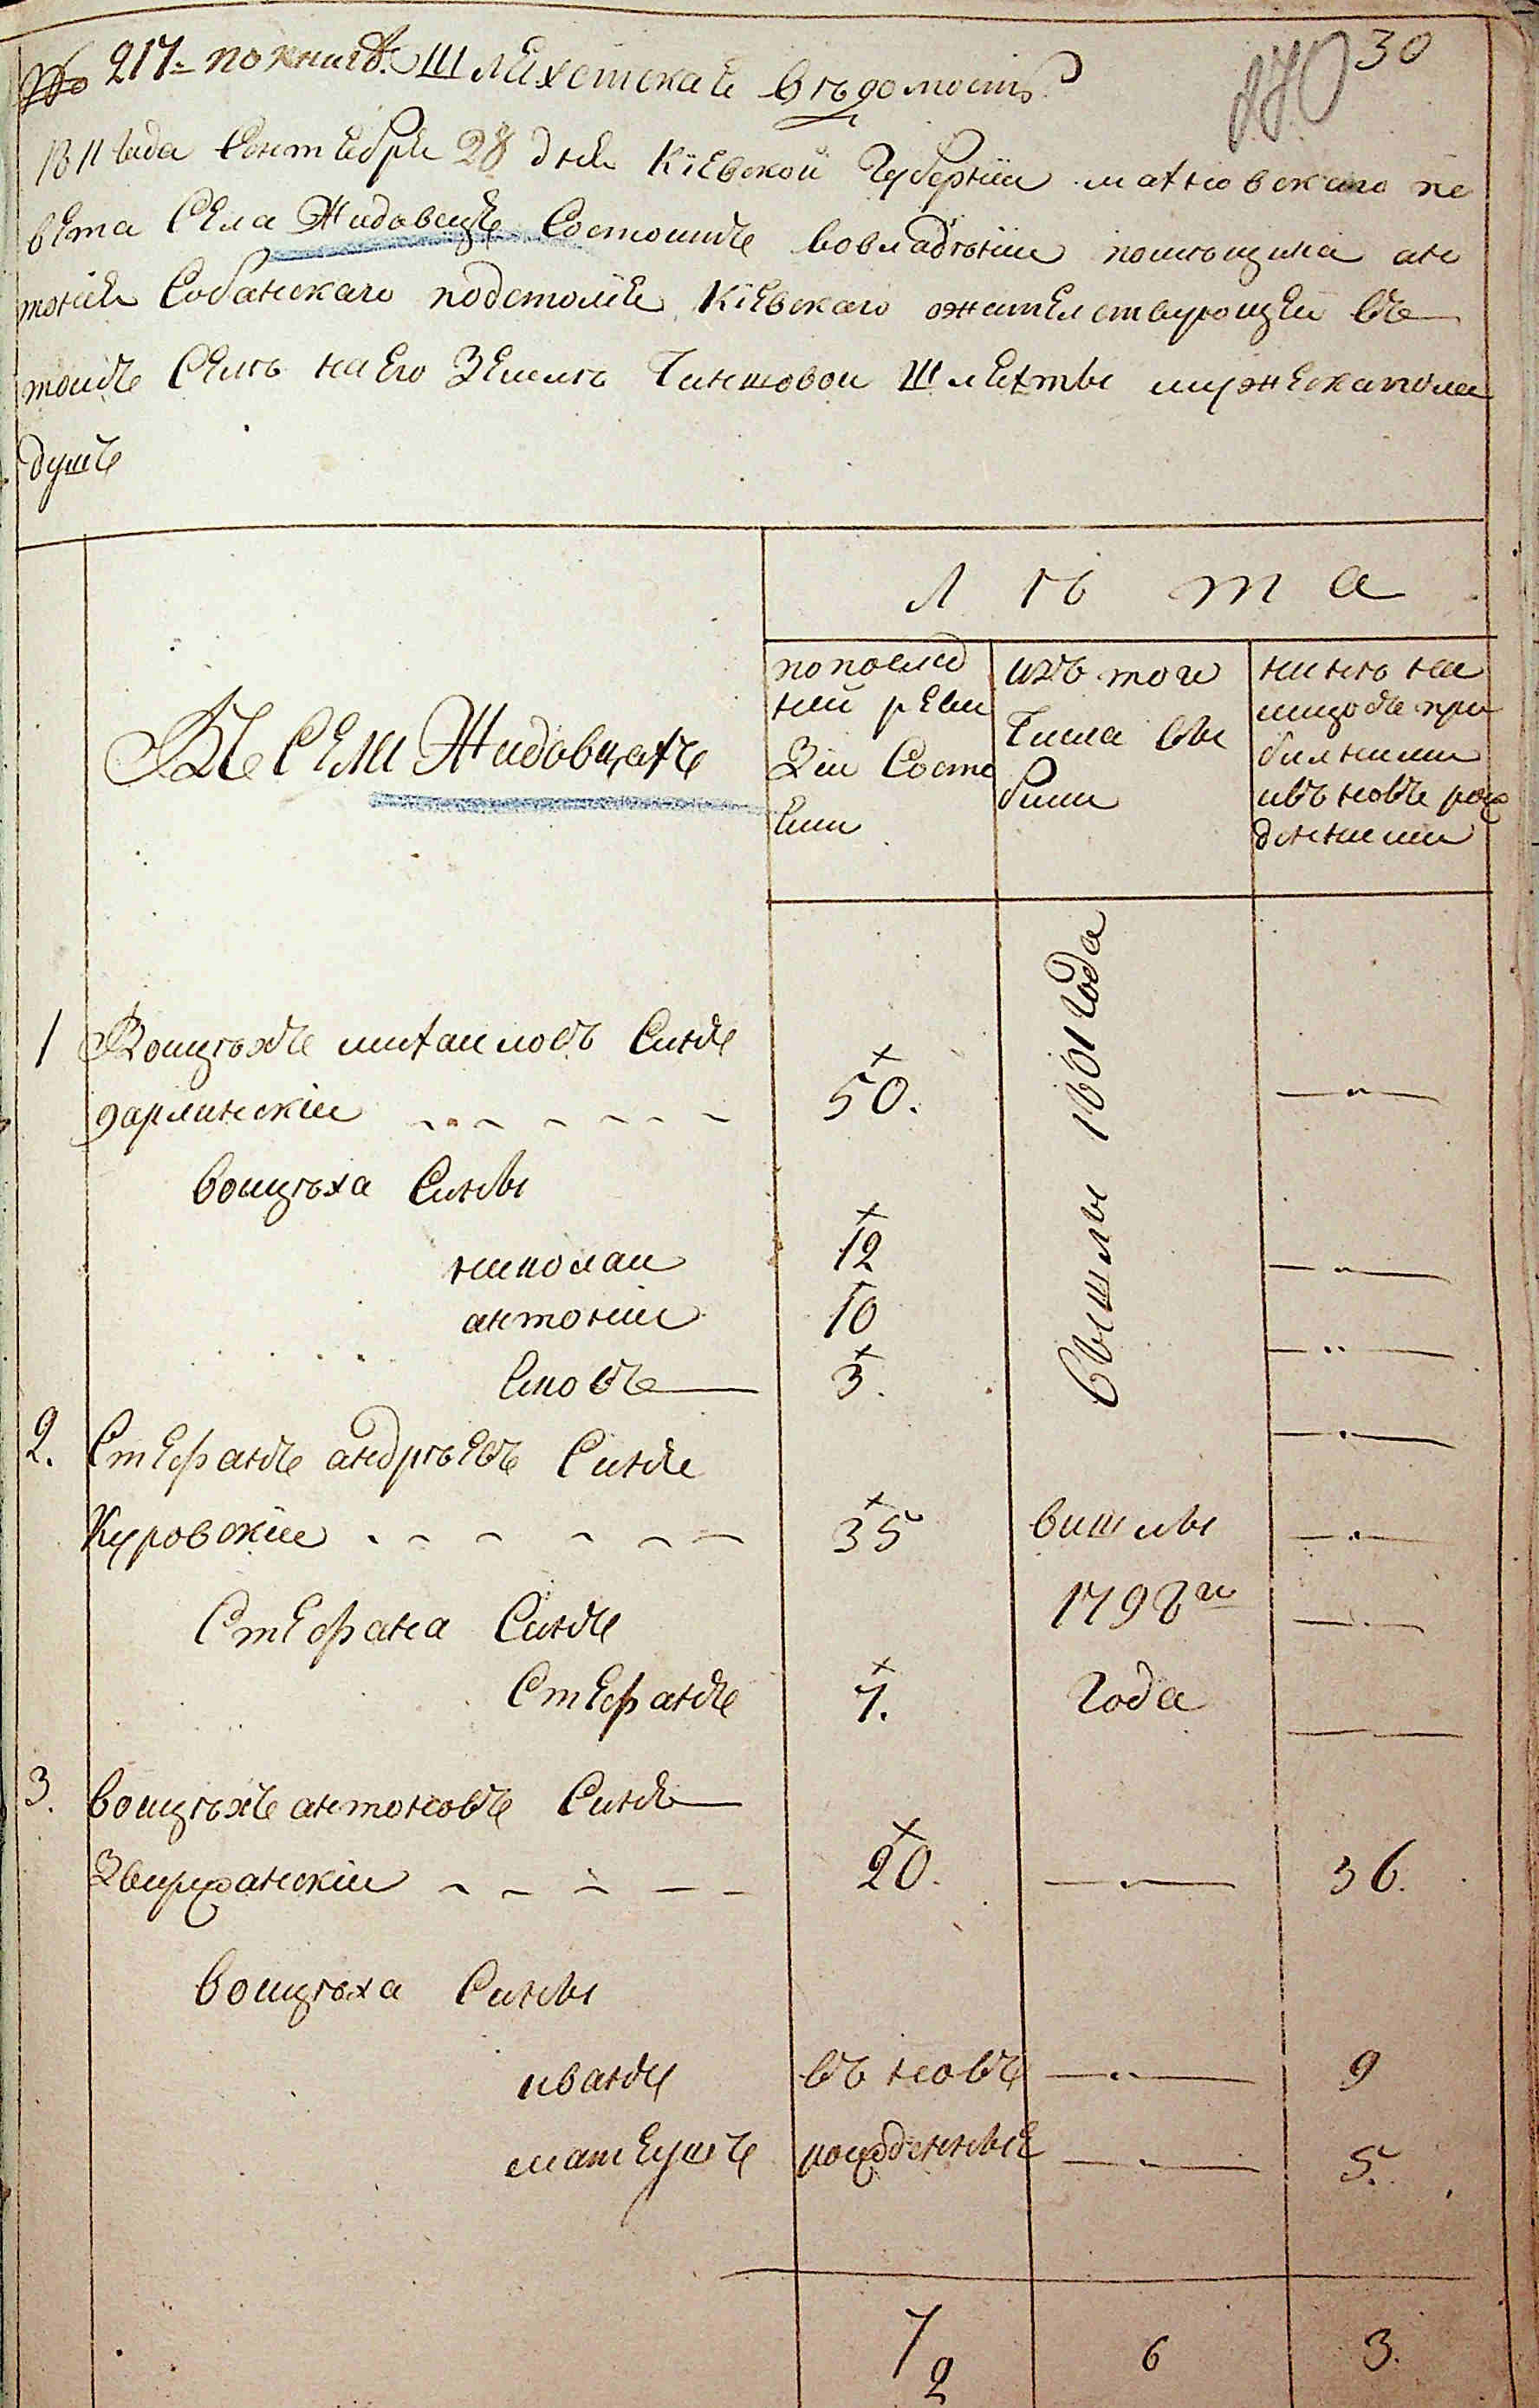 № 217 = по книгѣ. Шляхетская вѣдомость
270 30
1811 года Сентября 28 дня Кіевской Губерніи махновскаго по
вета Села Жидовецъ Состоишъ вовладѣніи помѣщика ан
тонія Собанскаго подстолія Кіевскаго ожителствующей въ
томъ Селѣ на Его Землѣ Чиншовои Шляхты мужескаполи
душъ
Лѣта
попослед
ней реви
Зіи Состо
яли
изъ того
Числа вы
были
нинѣ на
лицобъ при
билними
ивъновъ рож
денними
Въ Сели Жидовцахъ
1 Воицѣхъ михаиловъ Синъ
дарлинскіи 50.
вышлы 1801 года
воицѣха Сины
николаи 12
антоніи 10
яковъ 3.
2. Стефанъ андрѣевъ Синъ
Куровскіи 35 вишлы
Стефана Синъ 1798го
Стефанъ 7. года
3. воицѣхъ антоновъ Синъ
Звирханскіи 20. 36.
воицѣха Сины
иванъ въновъ 9
матеушъ рожденные 5.
7/2 6 3.